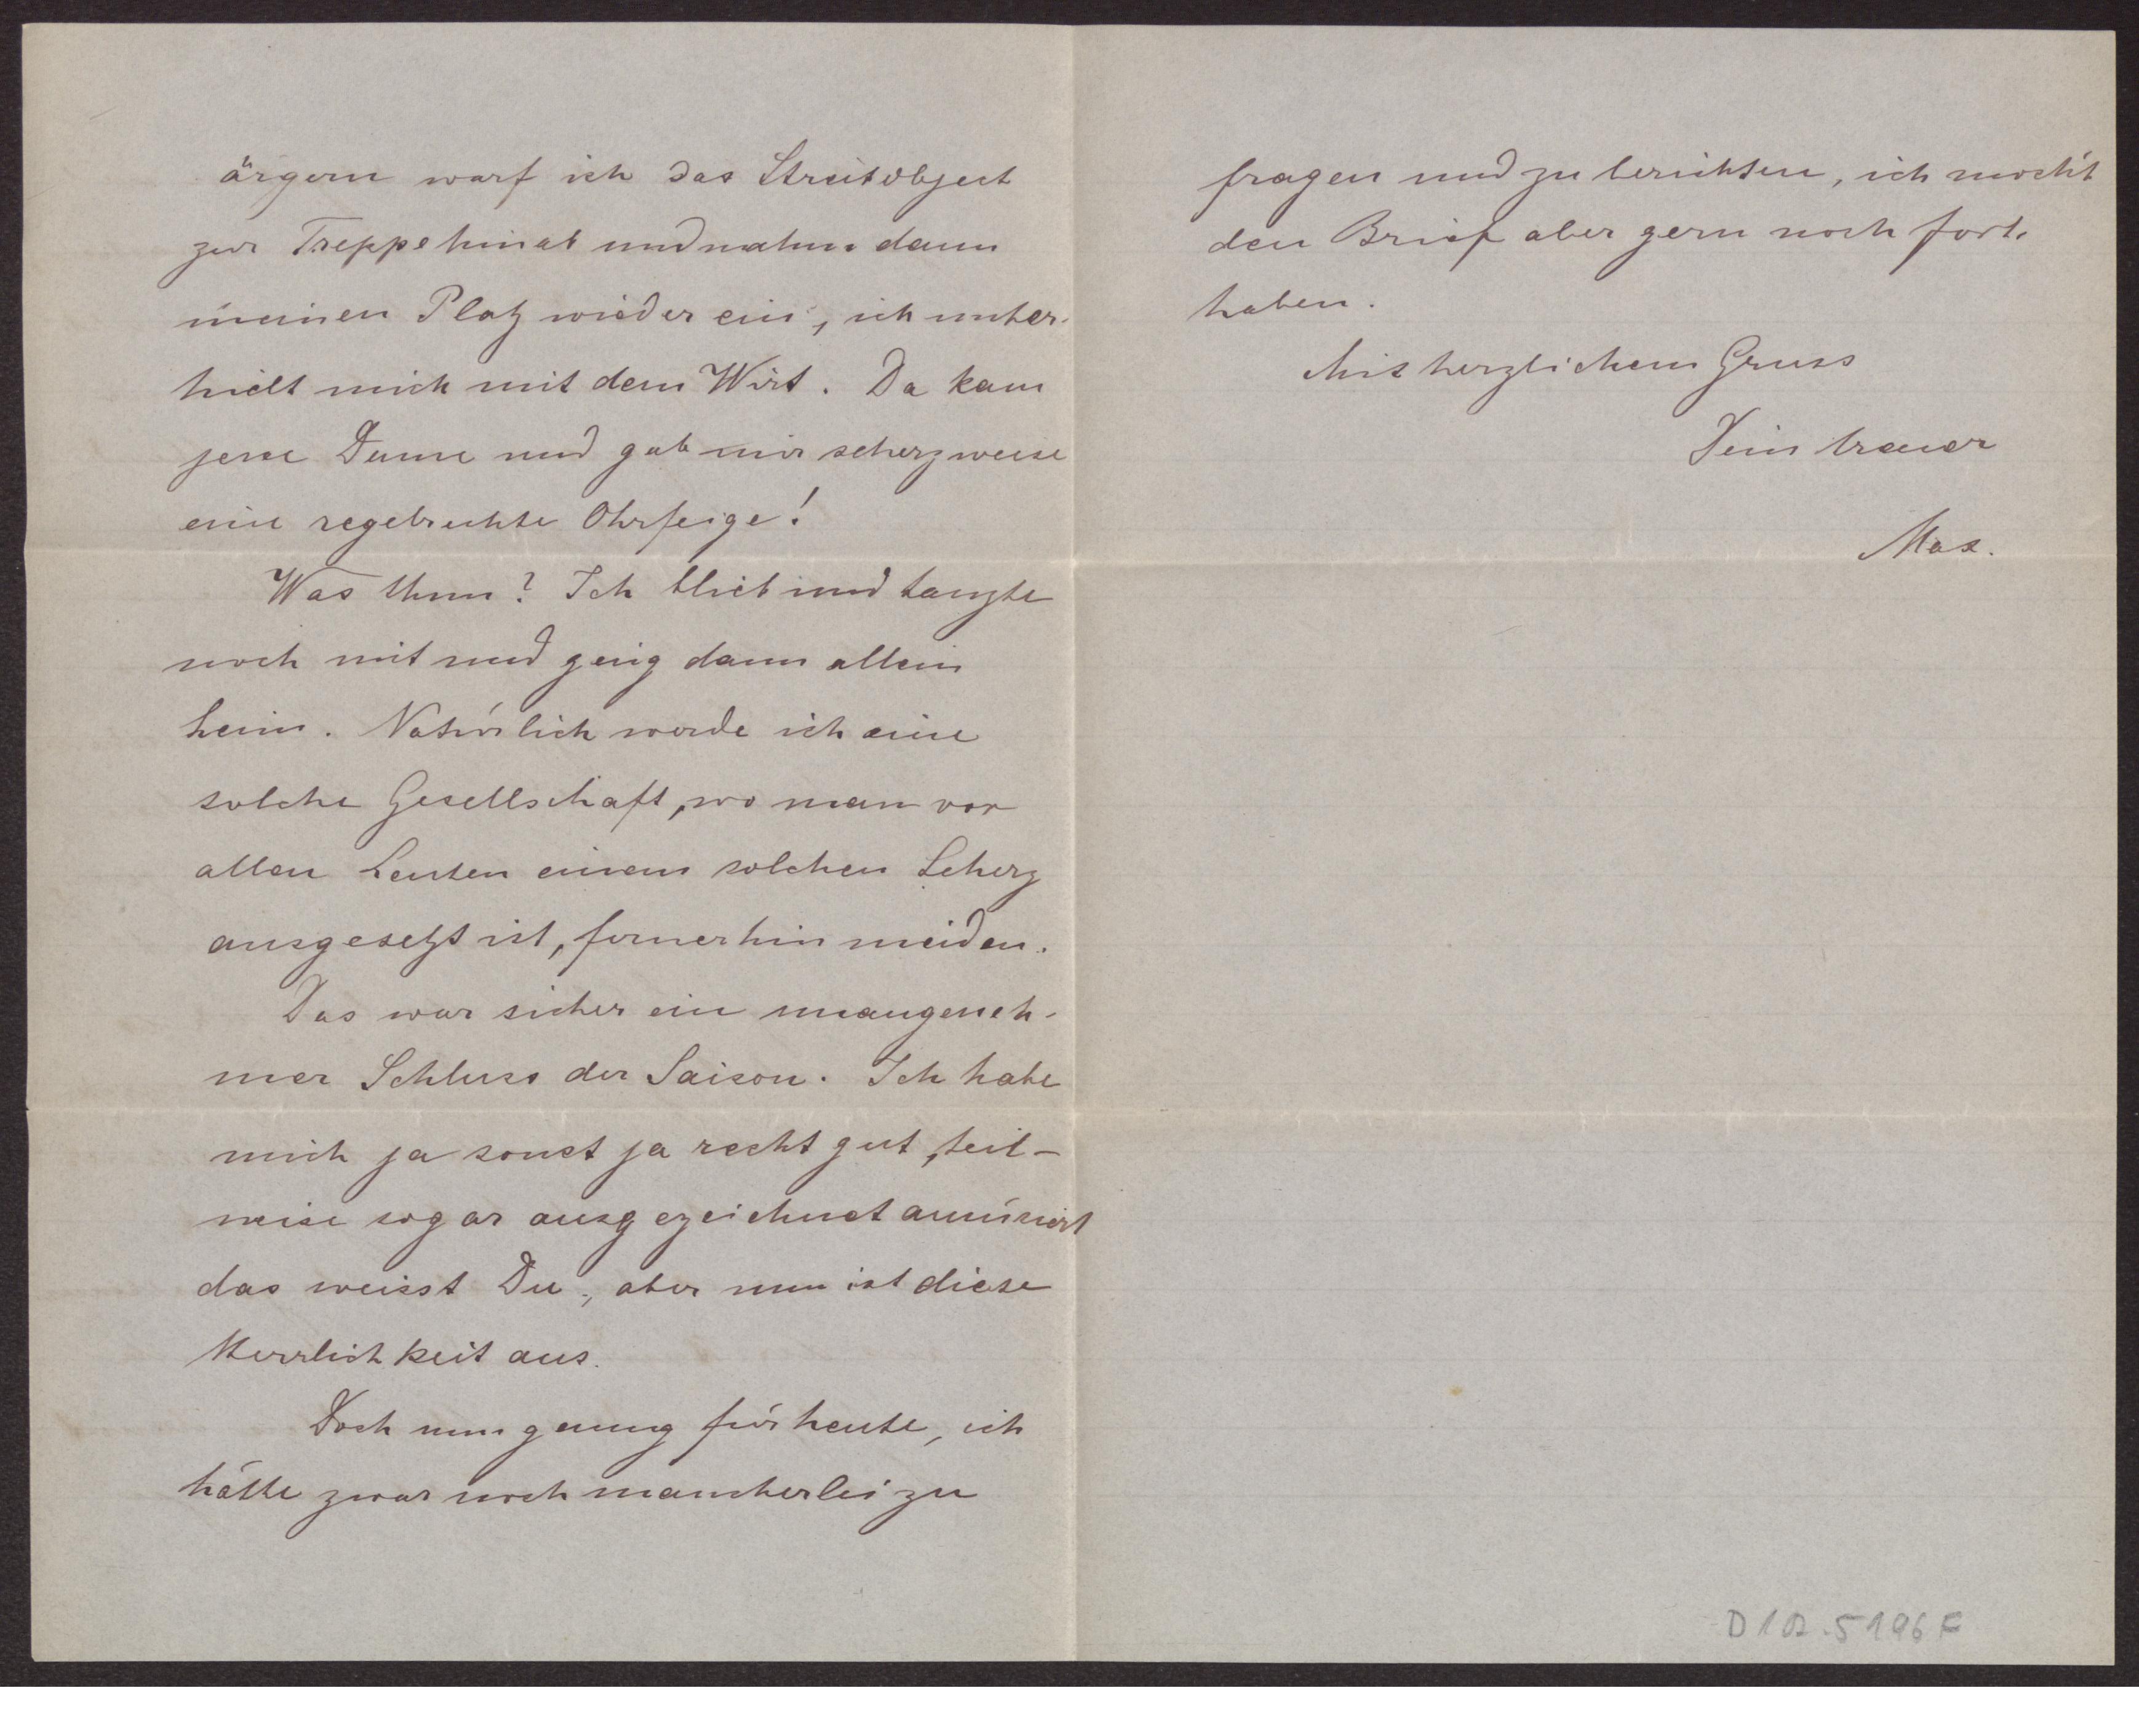 ärgern warf ich das Streitobject
zur Treppe hinab und nahm dann
meinen Platz wieder ein, ich unter-
hielt mich mit dem Wirt. Da kam
jene Dame und gab mir scherzweise
eine regelrechte Ohrfeige!
Was thun? Ich blieb und tanzte
noch mit und ging dann allein
heim. Natürlich werde ich eine
solche Gesellschaft, wo man vor
allen Leuten einem solchen Scherz
ausgesetzt ist, fernerhin meiden.
Das war sicher ein unangeneh-
mer Schluss der Saison. Ich habe
mich ja sonst ja recht gut, teil-
weise sogar ausgezeichnet amüsiert
das weisst Du, aber nun ist diese
Herrlichkeit aus.
Doch nun genug für heute, ich
hätte zwar noch mancherlei zu
fragen und zu berichten, ich möcht
den Brief aber gern noch fort.
haben.
Mit herzlichem Gruss
Dein treuer
Max.
D 1A.5196 F